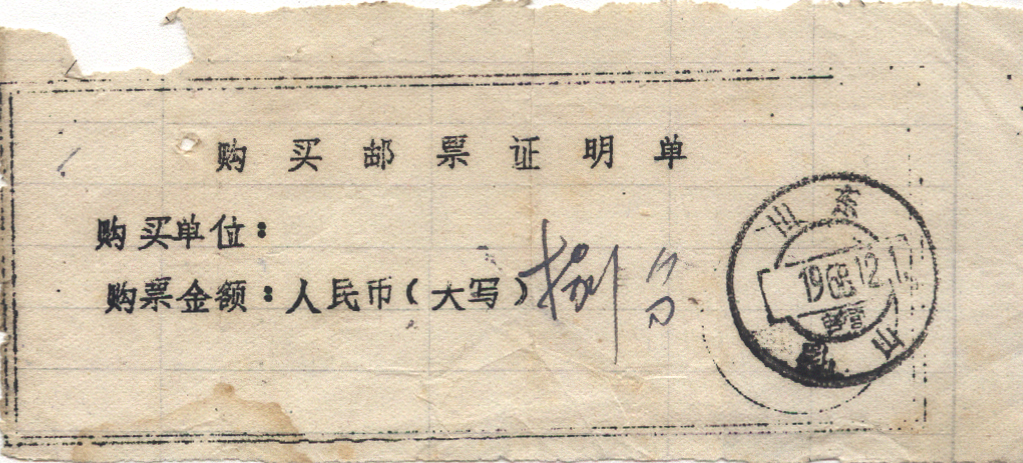 购买邮票证明单
购买单位：
购票金额：人民币（大写）捌分
山东
196 .12.1
山